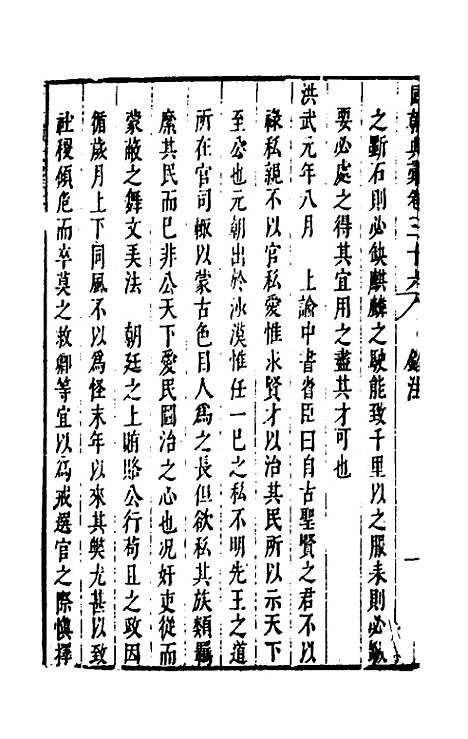 國朝典彙卷三十六 銓法 一
之斷石則必缺麒麟之駛能致千里以之服耒則必蹶
要必處之得其宜用之盡其才可也
洪武元年八月 上諭中書省臣曰自古聖賢之君不以
祿私親不以官私愛惟求賢才以治其民所以示天下
至公也元朝出於沙漠惟任一已之私不明先王之道
所在官司輒以蒙古色目人爲之長但欲私其族類羈
縻其民而已非公天下愛民圖治之心也况奸吏從而
蒙蔽之舞文美法 朝廷之上賄賂公行苟且之政因
循歲月上下同風不以爲怪末年以來其獘尤甚以致
社稷傾危而卒莫之救卿等宜以爲戒選官之際慎擇